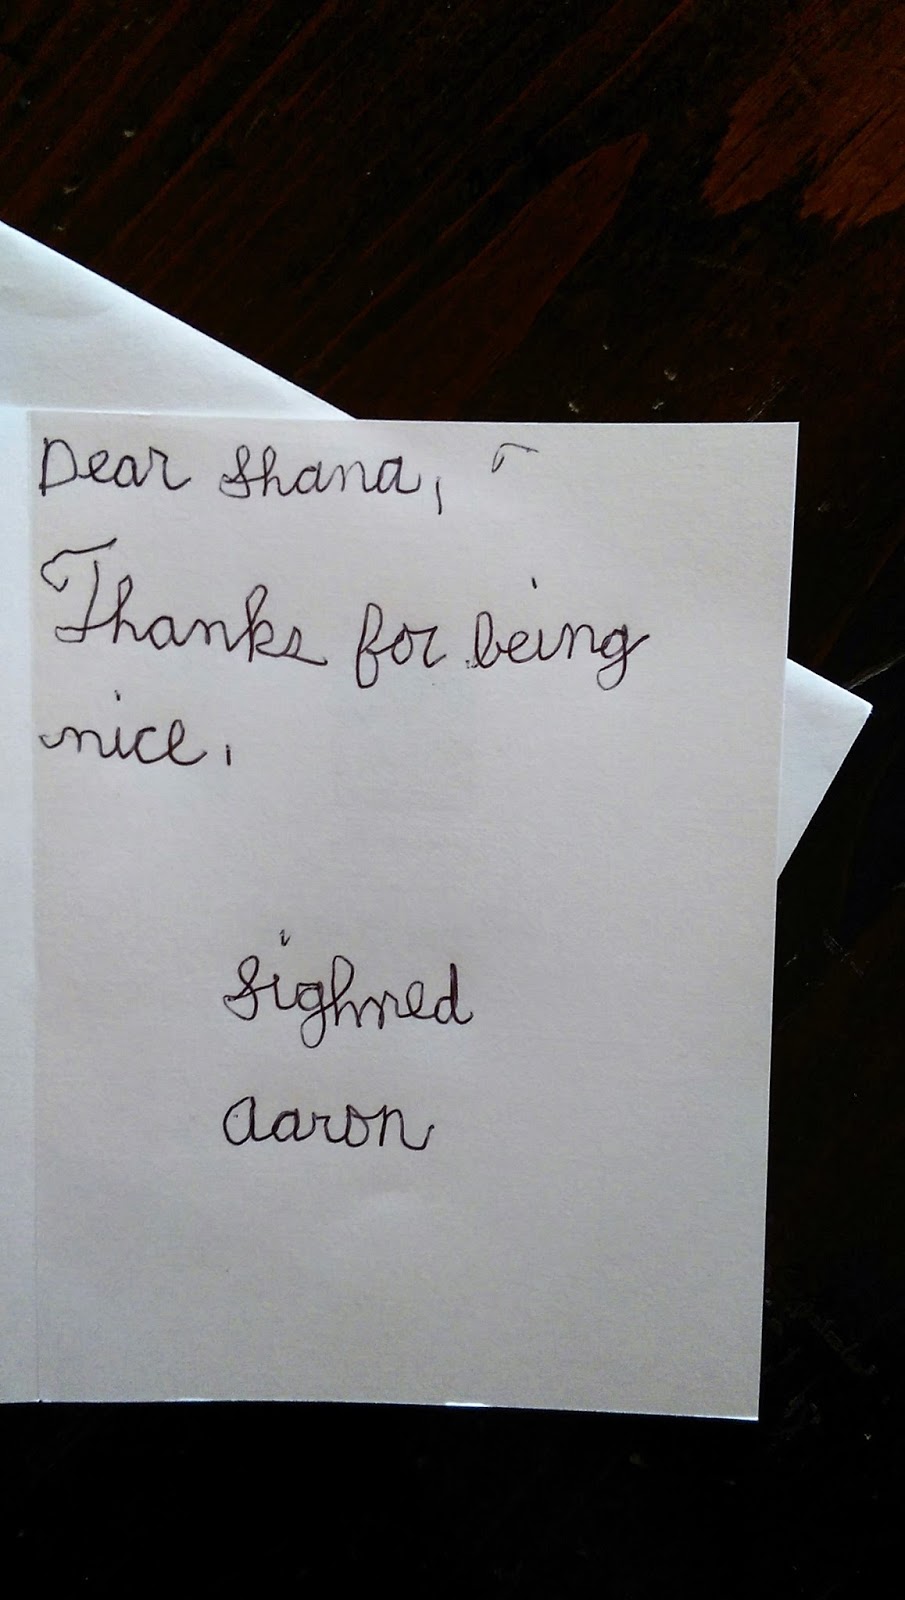 Dear Shana,
Thanks for being
nice.
Sighned
Aaron